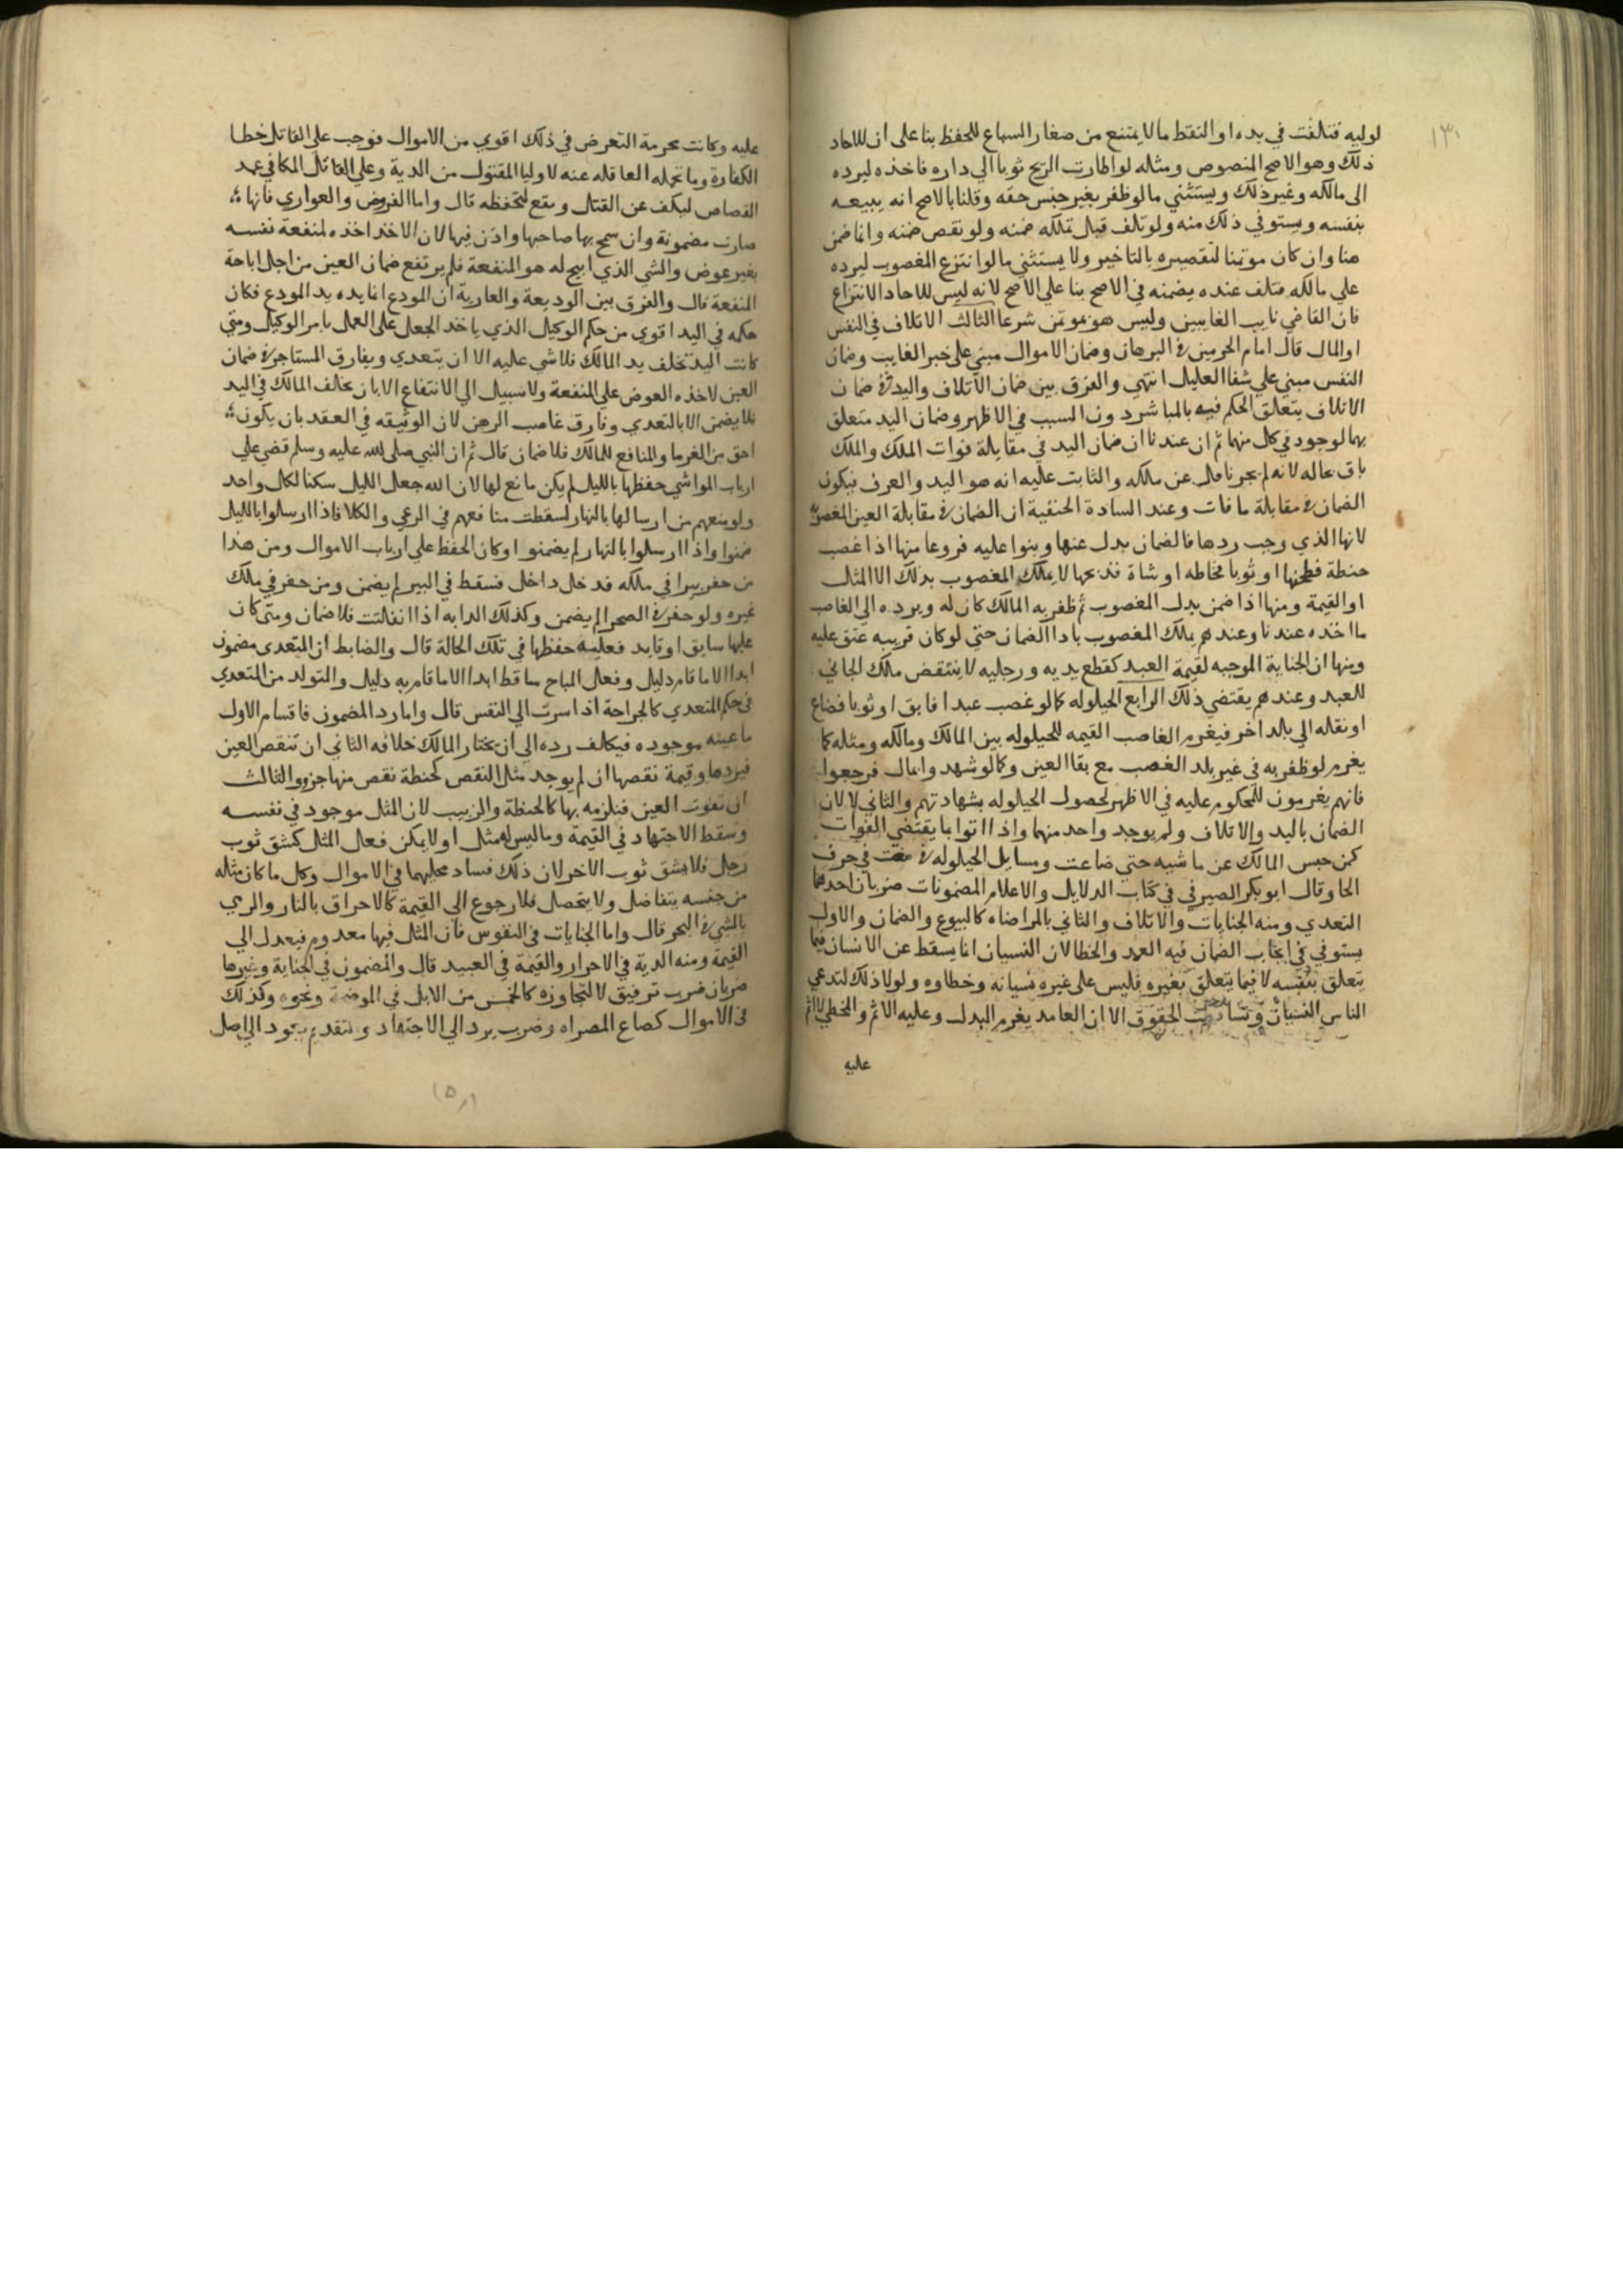 ١٣١
لوليه فتلفت في يده او التقط ما لا يمتنع من صغار السباع للحفظ بنا على ان للاحاد
ذلك وهو الاصح المنصوص ومثله لو اطارت الريح ثوبا الي داره فاخذه ليرده
الى مالكه وغير ذلك ويستثني ما لو ظفر بغير جنس حقه وقلنا بالاصح انه يبيعه
بنفسه ويستوفي ذلك منه ولو تلف قبل تملكه ضمنه ولو نقص ضمنه وانما ضمن
هنا وان كان موتمنا لتقصيره بالتاخير ولا يستثني ما لو انتزع المغصوب ليرده
علي مالكه فتلف عنده يضمنه في الاصح بنا علي الاصح لانه ليس للاحاد الانتزاع
فان القاضي نايب الغايبين وليس هو بموتمن شرعا الثالث الاتلاف في النفس
او المال قال امام الحرمين في البرهان وضمان الاموال مبني على خبر الغايب وضمان
النفس مبني علي شفا العليل انتهي والفرق بين ضمان الاتلاف واليد ان ضمان
الاتلاف يتعلق الحكم فيه بالمباشر دون السبب في الاظهر وضمان اليد متعلق
بهما لوجود في كل منهما ثم ان عندنا ان ضمان اليد في مقابلة فوات الملك والملك
باق بحاله لانه لم يجر ناقل عن مالكه والثابت عليه انه هو اليد والعرف فيكون
الضمان في مقابلة ما فات وعند السادة الحنفية ان الضمان في مقابلة العين المغصوبة
لانها الذي وجب ردها فالضمان بدل عنها وبنوا عليه فروعا منها اذا غصب
حنطة فطحنها او ثوبا فخاطه او شاة فذبحها لا يملك المغصوب بذلك الا المثل
او القيمة ومنها اذا ضمن بدل المغصوب ثم ظفر به المالك كان له ويرده الى الغاصب
ما اخذه عندنا وعندهم يملك المغصوب بادا الضمان حتي لو كان قريبه عتق عليه
ومنها ان الجناية الموجبه لقيمة العبد كقطع يديه ورجليه لا ينتقض ملك الجاني
للعبد وعندهم يقتضي ذلك الرابع الحيلوله كما لو غصب عبدا فابق او ثوبا فضاع
او نقله الى بلد اخر فيغرم الغاصب القيمه للحيلوله بين المالك وملكه ومثله كما
يغرم لو ظفر به في غير بلد الغصب مع بقا العين وكما لو شهدوا بمال فرجعوا
فانهم يغرمون للمحكوم عليه في الاظهر لحصول الحيلوله بشهادتهم والثاني لا لان
الضمان باليد والاتلاف ولم يوجد واحد منهما واذا اتوا بما يقتضي الفوات
كمن حبس المالك عن ماشيه حتي ضاعت ومسايل الحيلوله في في حرف
الحا وقال ابو بكر الصيرفي في كتاب الدلايل والاعلام المضمونات ضربان احدهما
التعدي ومنه الجنايات والاتلاف والثاني بالمراضاه كالبيوع والضمان والاول
يستوفي في ايجاب الضمان فيه العمد والخطا لان النسيان انما يسقط عن الانسان فيما
يتعلق بنفسه لا فيما يتعلق بغيره فليس على غيره نسيانه وخطاوه ولولا ذلك لتدعي
الناس النسيان الحقوق الا ان العامد يغرم البدل وعليه الاثم والمخطي لا اثم
عليه
عليه وكانت محرمة التعرض في ذلك اقوي من الاموال فوجب على القاتل خطا
الكفارة وما تحمله العاقله عنه لاوليا المقتول من الدية وعلى القاتل المكافي عمد
القصاص ليكف عن القتال ويقع لتحفظه قال واما القروض والعواري فانها
صارت مضمونة وان سمح بها صاحبها واذن فيها لان الاخذ اخذه لمنفعة نفسه
بغير عوض والشي الذي ابيح له هو المنفعة فلم يرتفع ضمان العين من اجل اباحة
المنفعة قال والفرق بين الوديعة والعارية ان المودع انما يده يد المودع فكان
حكمه في اليد اقوي من حكم الوكيل الذي ياخذ الجعل على العمل بامر الوكيل ومتي
كانت اليد تخلف يد المالك فلا شي عليه الا ان يتعدي ويفارق المستاجر في ضمان
العين لاخذه العوض على المنفعة ولا سبيل الي الانتفاع الا بان يخالف المالك في اليد
فلا يضمن الا بالتعدي وفارق غاصب الرهن لان الوثيقه في العقد بان يكون
احق من الغرما والمنافع للمالك فلا ضمان قال ثم ان النبي صلى الله عليه وسلم قضي على
ارباب المواشي حفظها بالليل لم يكن مانع لها لان الله جعل الليل سكنا لكل واحد
ولو منعهم من ارسالها بالنهار لسقطت منافعهم في الرعي والكلا فاذا ارسلوا بالليل
ضمنوا واذا ارسلوا بالنهار لم يضمنوا وكان الحفظ علي ارباب الاموال ومن هذا
من حفر بيرا في ملكه فدخل داخل فسقط في البير لم يضمن ومن حفر في ملك
غيره ولو حفر في الصحرا لم يضمن وكذلك الدابه اذا انفلتت فلا ضمان ومتى كان
عليها سايق او قايد فعليه حفظها في تلك الحالة قال والضابط ان المتعدي مضمون
ابدا الا ما قام دليل وفعل المباح ساقط ابدا الا ما قام به دليل والمتولد من المتعدي
في حكم المتعدي كالجراحة اذا سرت الي النفس قال واما رد المضمون فاقسام الاول
ما عينه موجوده فيكلف رده الى ان يختار المالك خلافه الثاني ان تنقص العين
فيردها وقيمة نقصها ان لم يوجد مثل النقص كحنطة نقص منها جزو والثالث
ان تفوت العين فيلزمه بها كالحنطة والزبيب لان المثل موجود في نفسه
وسقط الاجتهاد في القيمة وما ليس له مثل او لا يمكن فعال المثل كشق ثوب
رجل فلا يشق ثوب الاخر لان ذلك فساد محليهما في الاموال وكل ما كان مثله
من جنسه يتفاضل ولا يتحصل فلا رجوع الى القيمة كالاحراق بالنار والرمي
بالشي في البحر قال واما الجنايات في النفوس فان المثل فيها معدوم فيعدل الى
القيمة ومنه الدية في الاحرار والقيمة في العبيد قال والمضمون في الجناية وغيرها
ضربان ضرب توفيق لا تجاوزه كالخمس من الابل في الموضحة ونحوه وكذلك
في الاموال كصاع المصراه وضرب يرد الي الاجتهاد و يعود الى اصل